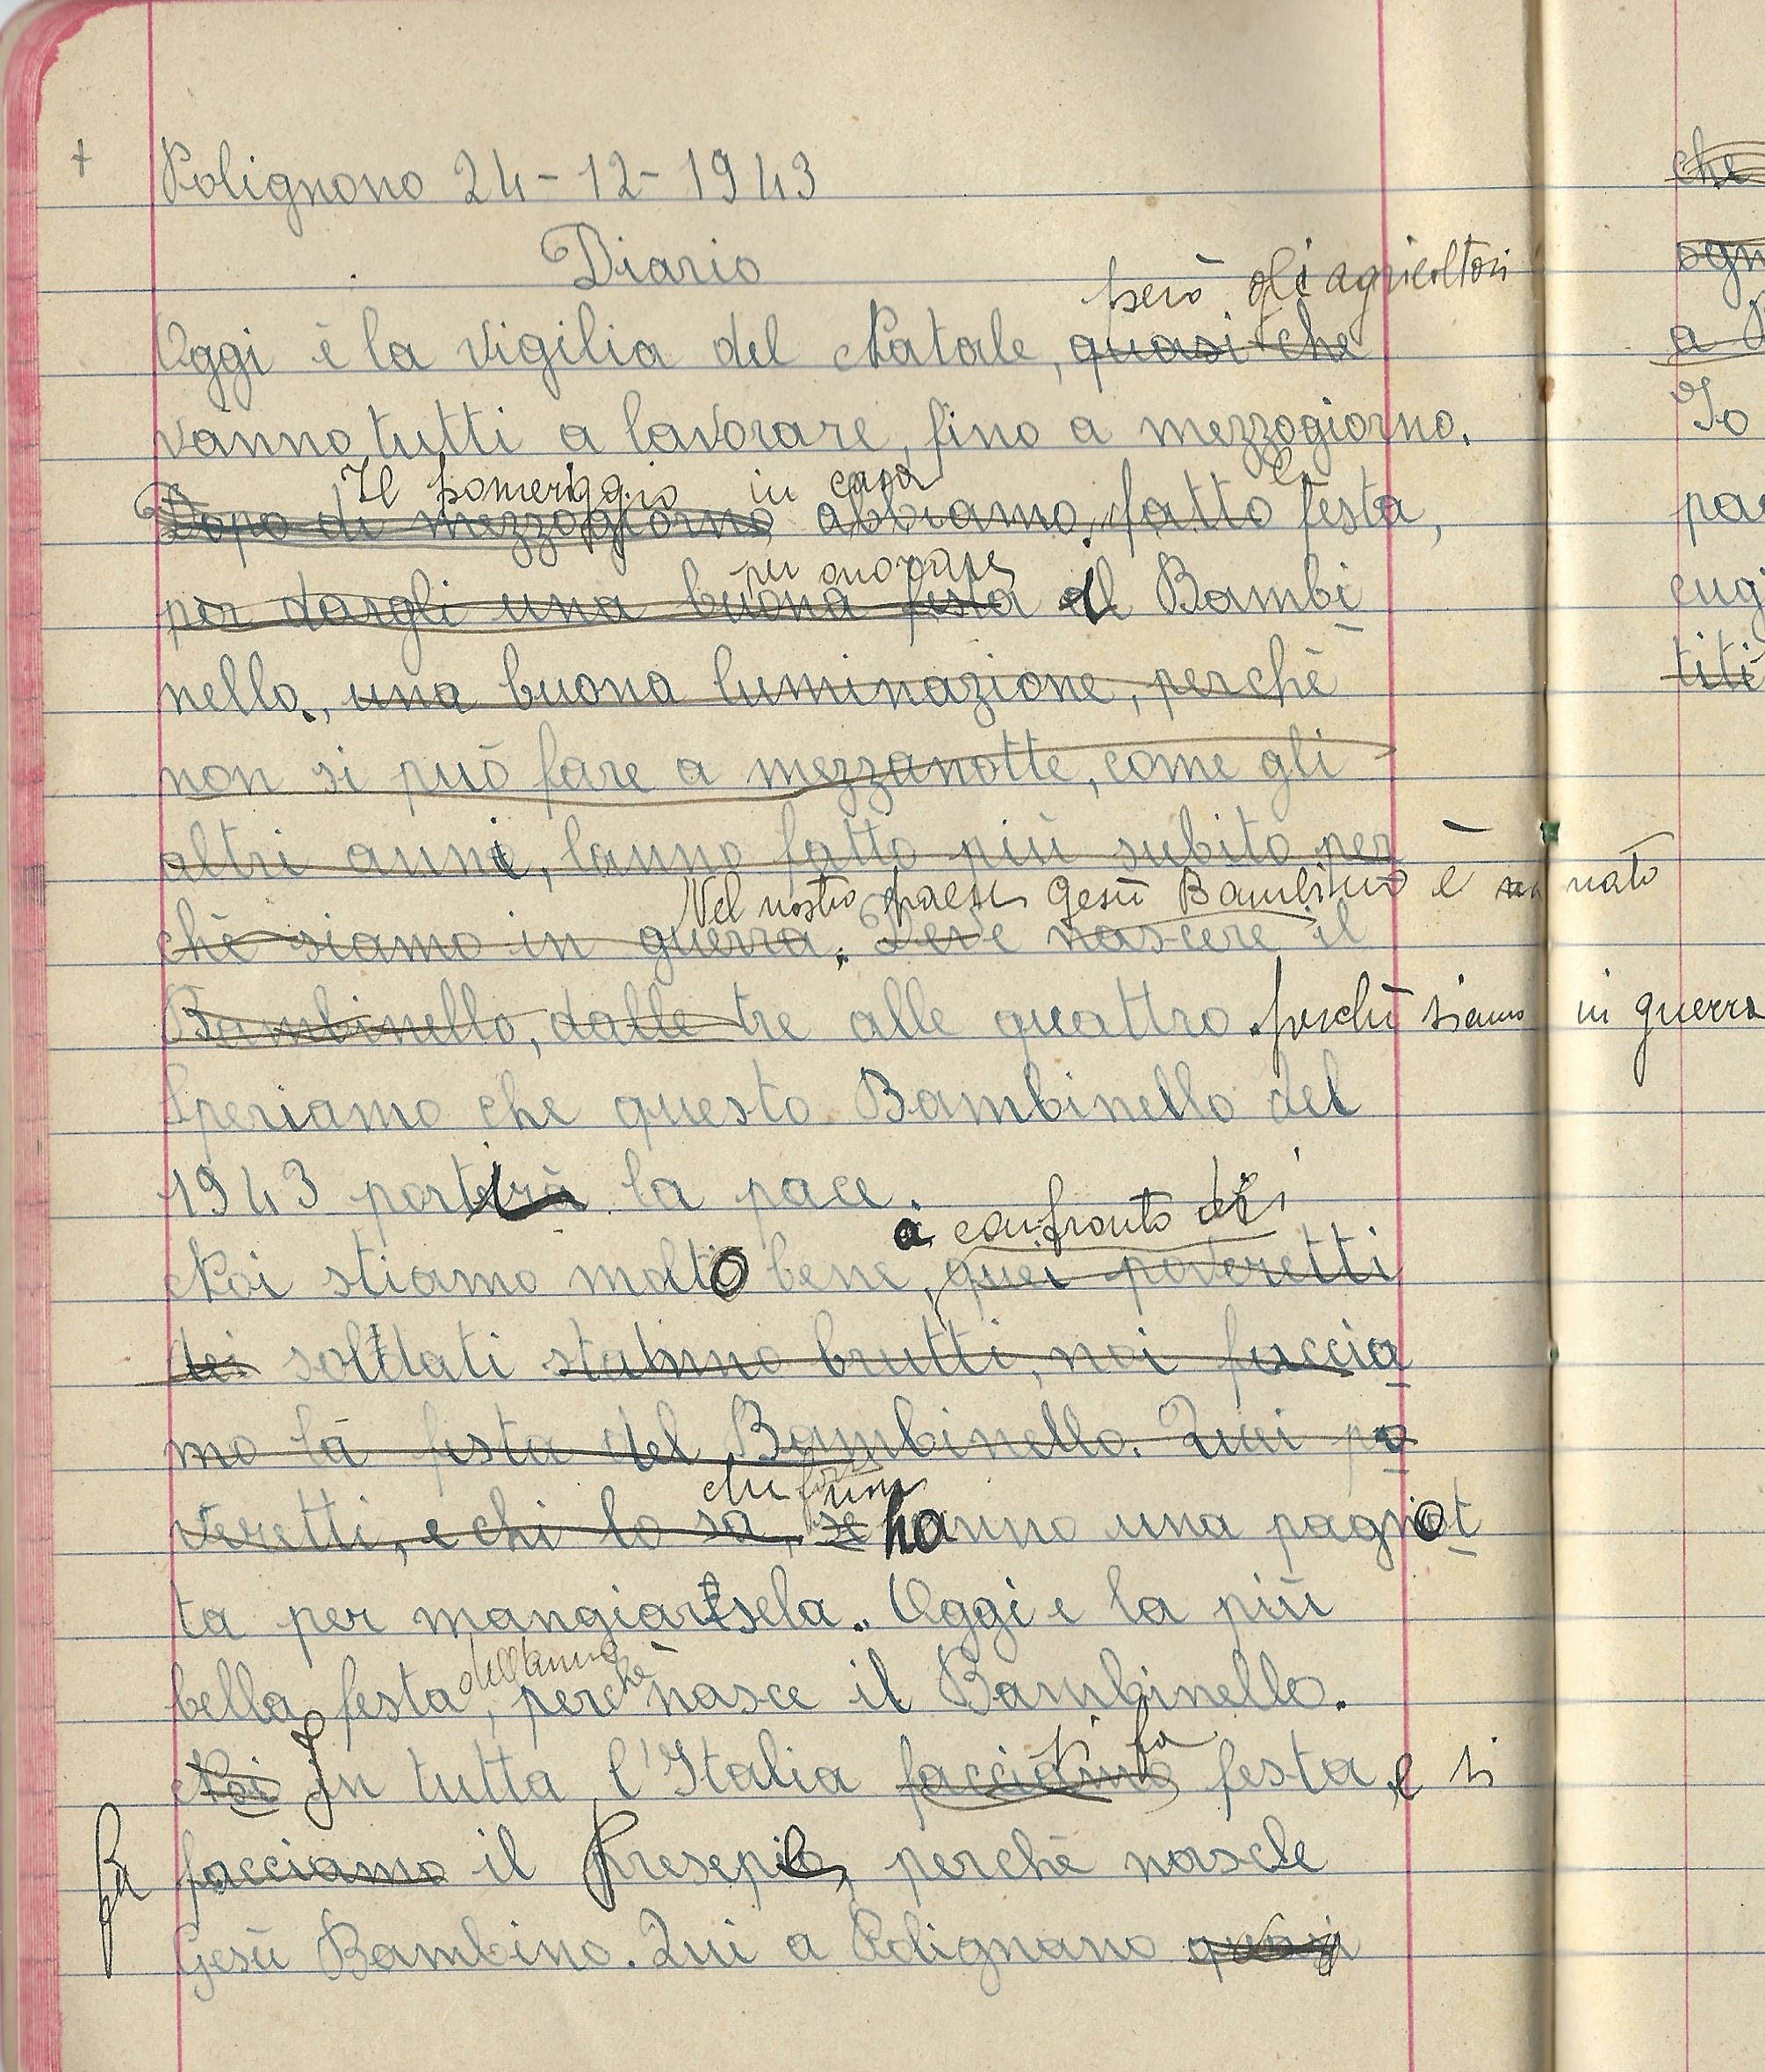 + Polignono 24-12-1943
Diario
però gli agricoltori
Oggi è la vigilia del Natale, quasi che
vanno tutti a lavorare, fino a mezzogiorno.
Il pomeriggio in casa la
Dopo di mezzogiorno abbiamo fatto festa,
per onorare
per dargli una buona festa al Bambi
nello, una buona luminazione, perchè
non si può fare a mezzanotte, come gli
altri anni, lanno fatto più subito per
Nel nostro paese Gesù Bambino è nato
chè siamo in guerra. Deve nascere il
Bambinello, dalle tre alle quattro. perchè siamo in guerra
Speriamo che questo Bambinello del
1943 porterà la pace.
a confronto dei
Noi stiamo molto bene, quei poveretti
dei soldati stanno brutti, noi faccia
mo la festa del Bambinello. Quei po
che forse non
veretti, e chi lo sa, se hanno una pagnot
ta per mangiarsela. Oggi e la più
dell'anno
bella festa, perchè nasce il Bambinello.
si fa
Noi In tutta l'Italia facciamo festa e si
fa facciamo il Presepio, perchè nasce
Gesù Bambino. Qui a Polignano quasi
che
ogn
a
Io
pa
cug
titi